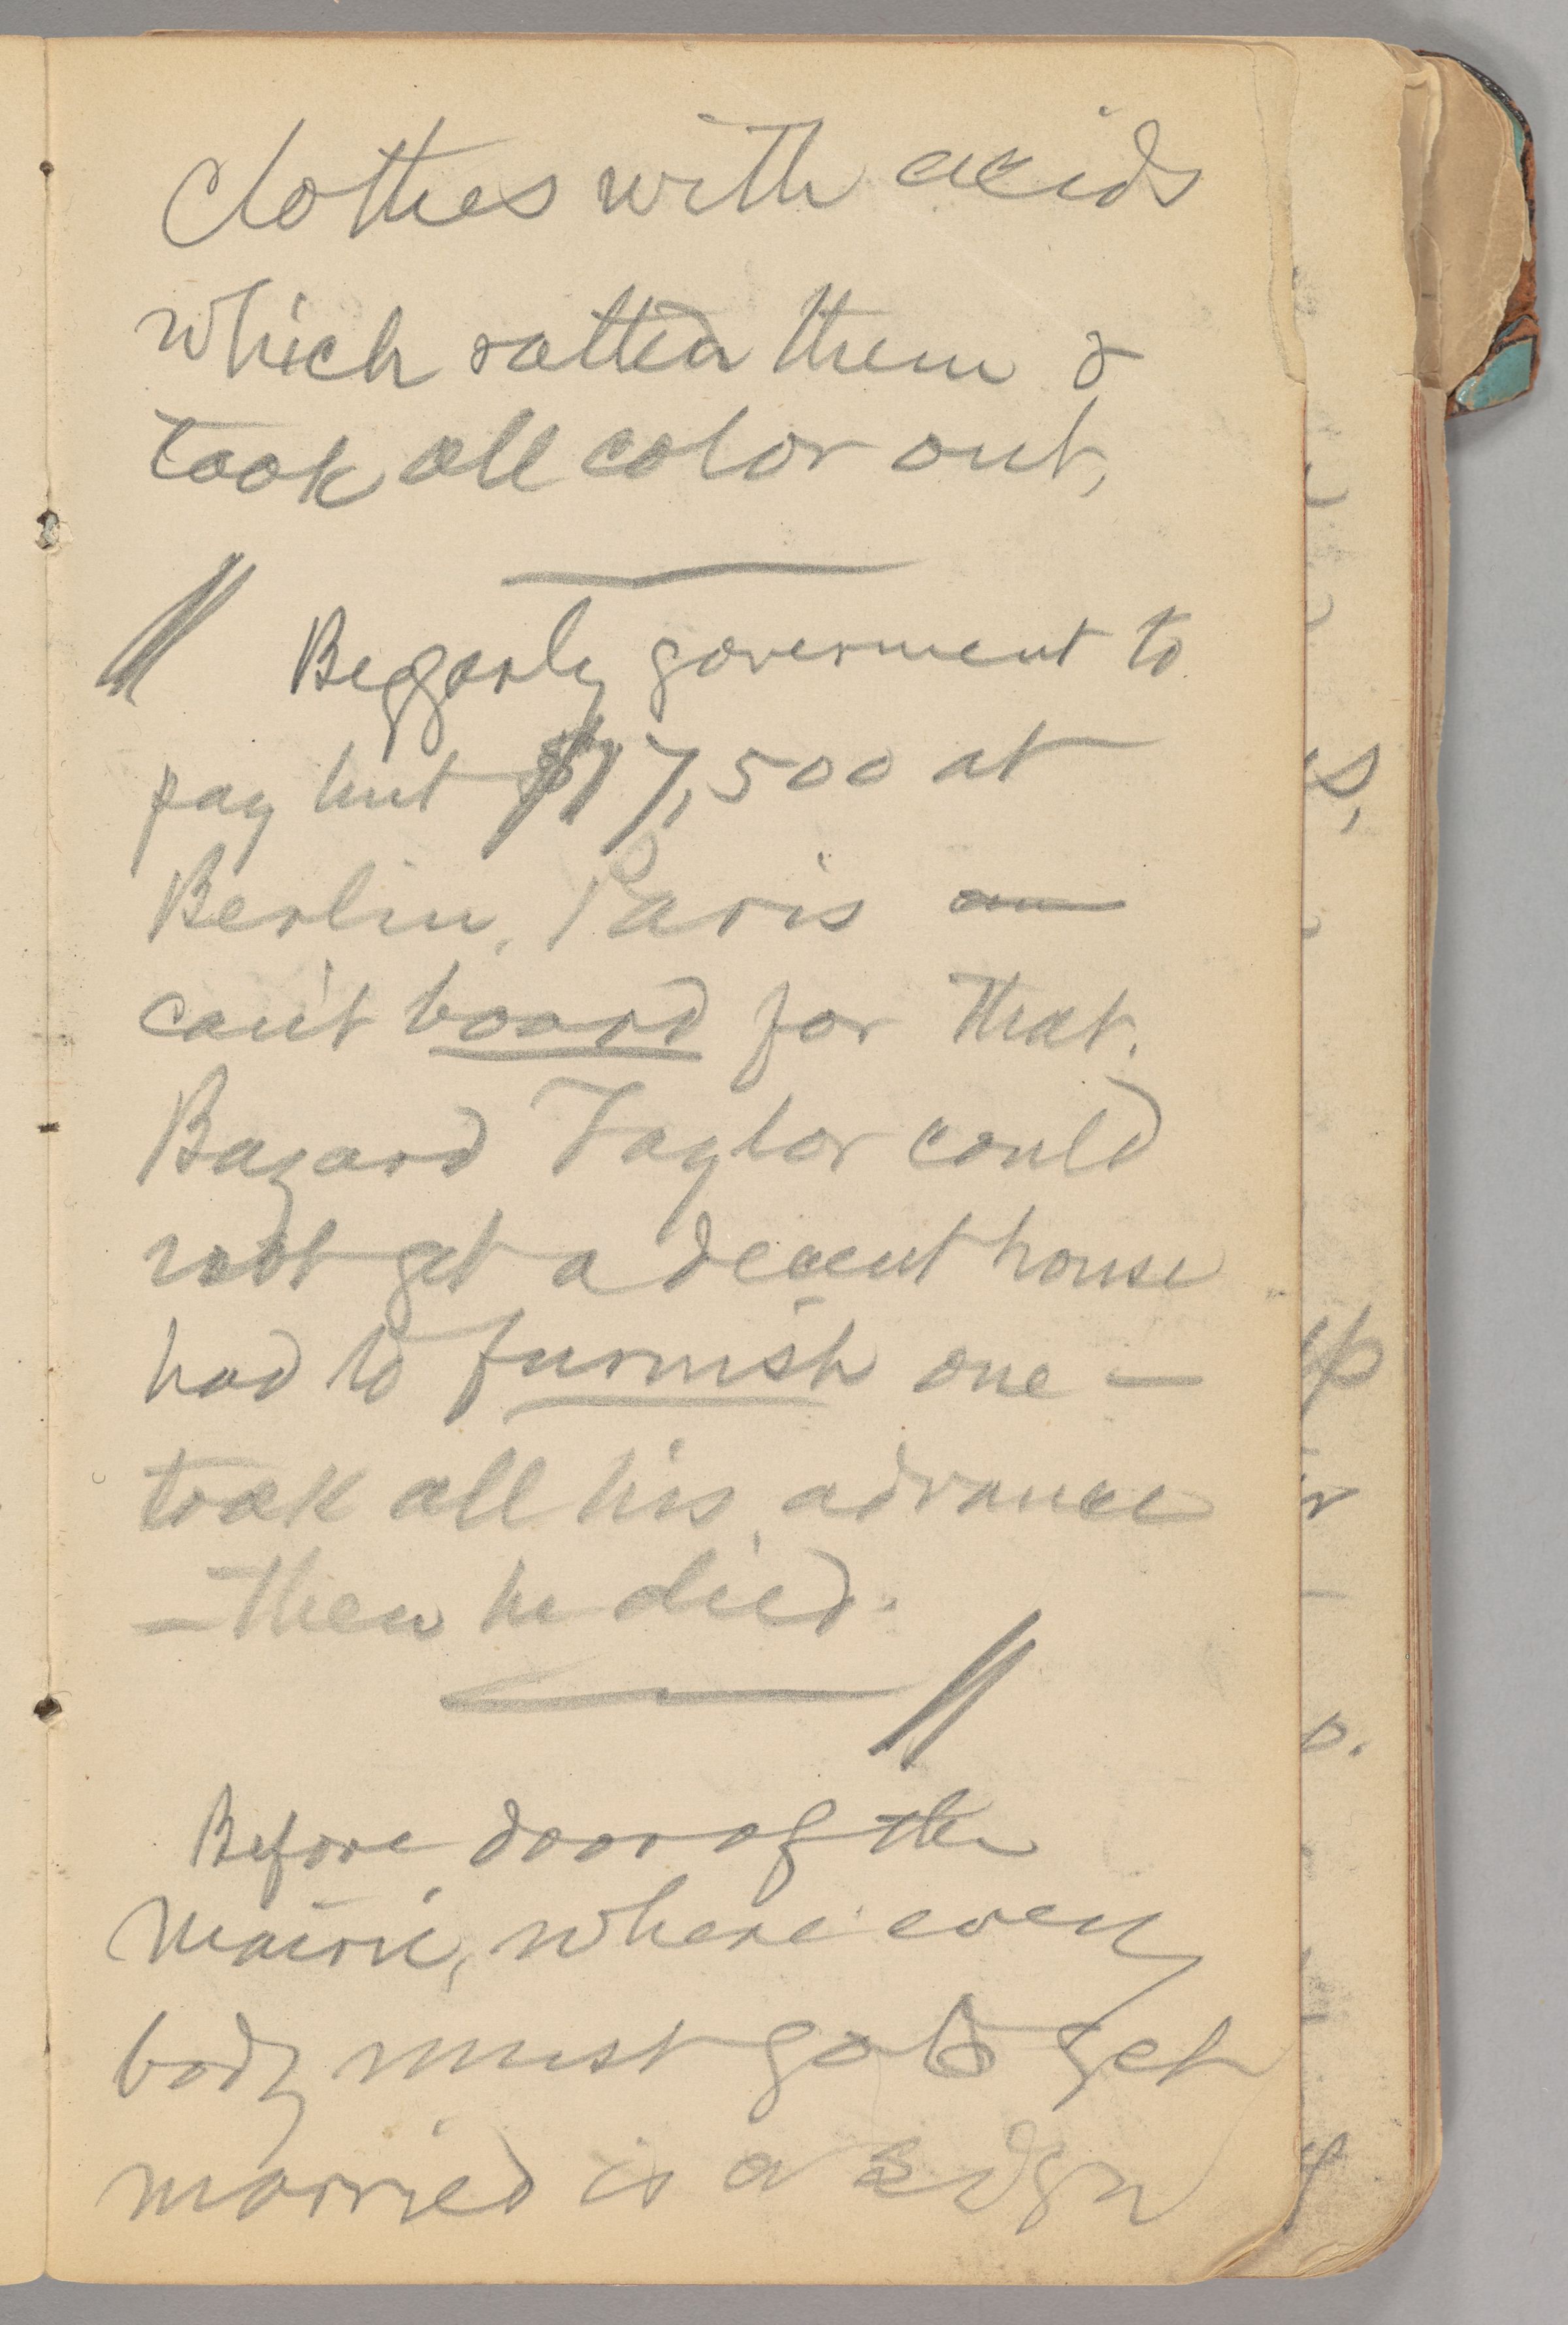 clothes with acids
which rotted them &
took all color out,
Beggarly goverment to
pay but $17,500 at
Berlin, Paris —
can't board for that.
Bayard Taylor could
not get a decent house
had to furnish one —
took all his advance
— then he died.
Before door of the
Mairie, where every
body must go to get
married is a sign